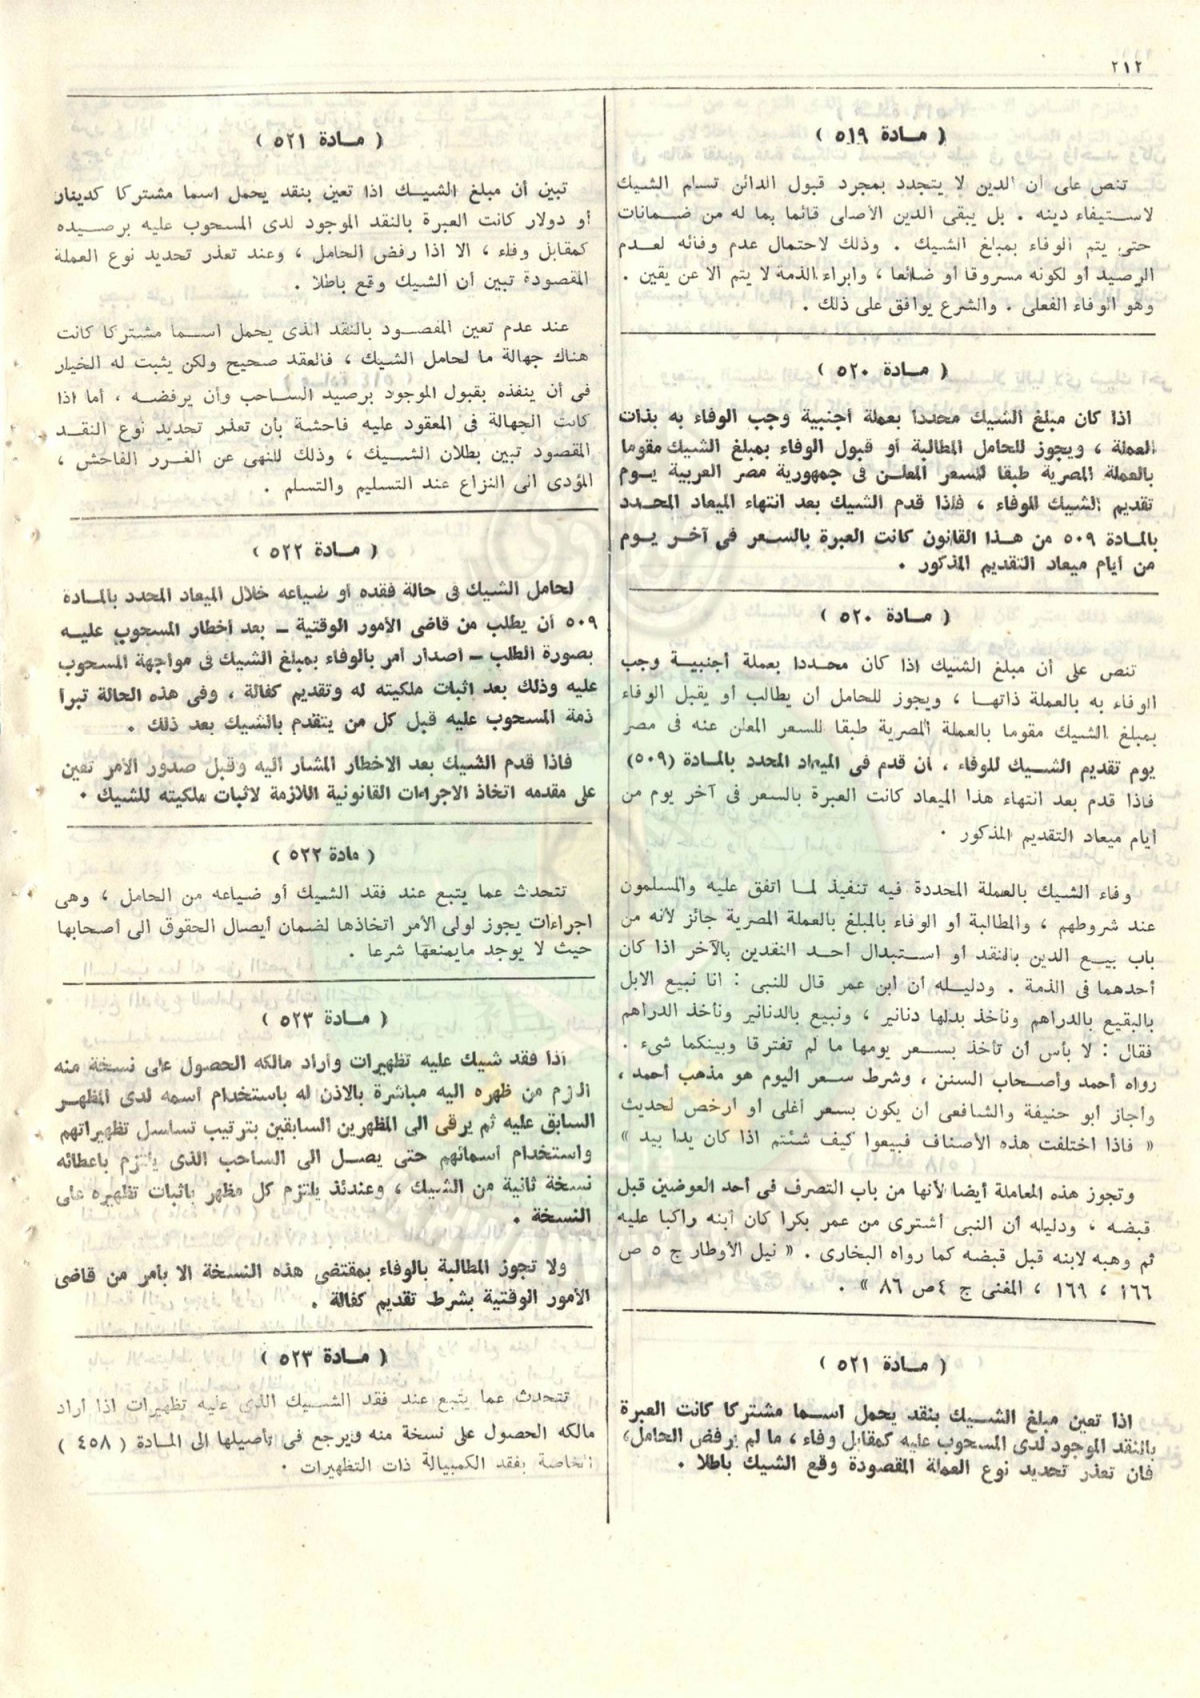 ٢١٢
( مادة ٥١٩ )
تنص على أن الدين لا يتجدد بمجرد قبول الدائن تسلم الشيك
لاستيفاء دينه . بل يبقى الدين الأصلى قائما بما له من ضمانات
حتى يتم الوفاء بمبلغ الشيك . وذلك لاحتمال عدم وفائه لعدم
الرصيد أو لكونه مسروقا أو ضائعا ، وابراء الذمة لا يتم الا عن يقين .
وهو الوفاء الفعلى . والشرع يوافق على ذلك .
( مادة ٥٢٠ )
اذا كان مبلغ الشيك محددا بعملة أجنبية وجب الوفاء به بذات
العملة ، ويجوز للحامل المطالبة أو قبول الوفاء بمبلغ الشيك مقوما
بالعملة المصرية طبقا للسعر المعلن فى جمهورية مصر العربية يوم
تقديم الشيك للوفاء ، فاذا قدم الشيك بعد انتهاء الميعاد المحدد
بالمادة ٥٠٩ من هذا القانون كانت العبرة بالسعر فى آخر يوم
من أيام ميعاد التقديم المذكور .
( مادة ٥٢٠ )
تنص على أن مبلغ الشيك اذا كان محددا بعملة أجنبية وجب
الوفاء به بالعملة ذاتها ، ويجوز للحامل أن يطالب أو يقبل الوفاء
بمبلغ الشيك مقوما بالعملة المصرية طبقا للسعر المعلن عنه فى مصر
يوم تقديم الشيك للوفاء ، أن قدم فى الميعاد المحدد بالمادة (٥٠٩)
فاذا قدم بعد انتهاء هذا الميعاد كانت العبرة بالسعر فى آخر يوم من
أيام ميعاد التقديم المذكور .
وفاء الشيك بالعملة المحددة فيه تنفيذ لما اتفق عليه والمسلمون
عند شروطهم ، والمطالبة أو الوفاء بالمبلغ بالعملة المصرية جائز لأنه من
باب بيع الدين بالنقد أو استبدال أحد النقدين بالآخر اذا كان
أحدهما فى الذمة . ودليله أن ابن عمر قال للنبى : انا نبيع الابل
بالبقيع بالدراهم ونأخذ بدلها دنانير ، ونبيع بالدنانير ونأخذ الدراهم
فقال : لا بأس أن تأخذ بسعر يومها ما لم تفترقا وبينكما شىء .
رواه أحمد وأصحاب السنن ، وشرط سعر اليوم هو مذهب أحمد ،
وأجاز أبو حنيفة والشافعى أن يكون بسعر أغلى أو أرخص لحديث
« فاذا اختلفت هذه الأصناف فبيعوا كيف شئتم اذا كان يدا بيد »
وتجوز هذه المعاملة أيضا لأنها من باب التصرف فى أحد العوضين قبل
قبضه ، ودليله أن النبى أشترى من عمر بكرا كان أبنه راكبا عليه
ثم وهبه لابنه قبل قبضه كما رواه البخارى . « نيل الأوطار ج ٥ ص
١٦٦ ، ١٦٩ ، المغنى ج ٤ ص ٨٦ » .
( مادة ٥٢١ )
اذا تعين مبلغ الشيك بنقد يحمل اسما مشتركا كانت العبرة
بالنقد الموجود لدى المسحوب عليه كمقابل وفاء ، ما لم يرفض الحامل،
فان تعذر تحديد نوع العملة المقصودة وقع الشيك باطلا .
( مادة ٥٢١ )
تبين أن مبلغ الشيك اذا تعين بنقد يحمل اسما مشتركا كدينار
أو دولار كانت العبرة بالنقد الموجود لدى المسحوب عليه برصيده
كمقابل وفاء ، الا اذا رفض الحامل ، وعند تعذر تحديد نوع العملة
المقصودة تبين أن الشيك وقع باطلا .
عند عدم تعين المقصود بالنقد الذى يحمل اسما مشتركا كانت
هناك جهالة ما لحامل الشيك ، فالعقد صحيح ولكن يثبت له الخيار
فى أن ينفذه بقبول الموجود برصيد الساحب وأن يرفضه ، أما اذا
كانت الجهالة فى المعقود عليه فاحشة بأن تعذر تحديد نوع النقد
المقصود تبين بطلان الشيك ، وذلك للنهى عن الغرر الفاحش ،
المؤدى الى النزاع عند التسليم والتسلم .
( مادة ٥٢٢ )
لحامل الشيك فى حالة فقده أو ضياعه خلال الميعاد المحدد بالمادة
٥٠٩ أن يطلب من قاضى الأمور الوقتية – بعد أخطار المسحوب عليه
بصورة الطلب – اصدار أمر بالوفاء بمبلغ الشيك فى مواجهة المسحوب
عليه وذلك بعد اثبات ملكيته له وتقديم كفالة ، وفى هذه الحالة تبرأ
ذمة المسحوب عليه قبل كل من يتقدم بالشيك بعد ذلك .
فاذا قدم الشيك بعد الاخطار المشار اليه وقبل صدور الأمر تعين
على مقدمه اتخاذ الاجراءات القانونية اللازمة لاثبات ملكيته للشيك .
( مادة ٥٢٢ )
تتحدث عما يتبع عند فقد الشيك أو ضياعه من الحامل ، وهى
اجراءات يجوز لولى الأمر اتخاذها لضمان أيصال الحقوق الى أصحابها
حيث لا يوجد مايمنعها شرعا .
( مادة ٥٢٣ )
أذا فقد شيك عليه تظهيرات وأراد مالكه الحصول على نسخة منه
الزم من ظهره اليه مباشرة بالاذن له باستخدام أسمه لدى المظهر
السابق عليه ثم يرقى الى المظهرين السابقين بترتيب تسلسل تظهيراتهم
واستخدام أسمائهم حتى يصل الى الساحب الذى يلتزم باعطائه
نسخة ثانية من الشيك ، وعندئذ يلتزم كل مظهر باثبات تظهيره على
النسخة .
ولا تجوز المطالبة بالوفاء بمقتضى هذه النسخة الا بأمر من قاضى
الأمور الوقتية بشرط تقديم كفالة .
( مادة ٥٢٣ )
تتحدث عما يتبع عند فقد الشيك الذى عليه تظهيرات اذا أراد
مالكه الحصول على نسخة منه ويرجع فى تأصيلها الى المادة ( ٤٥٨ )
الخاصة بفقد الكمبيالة ذات التظهيرات .